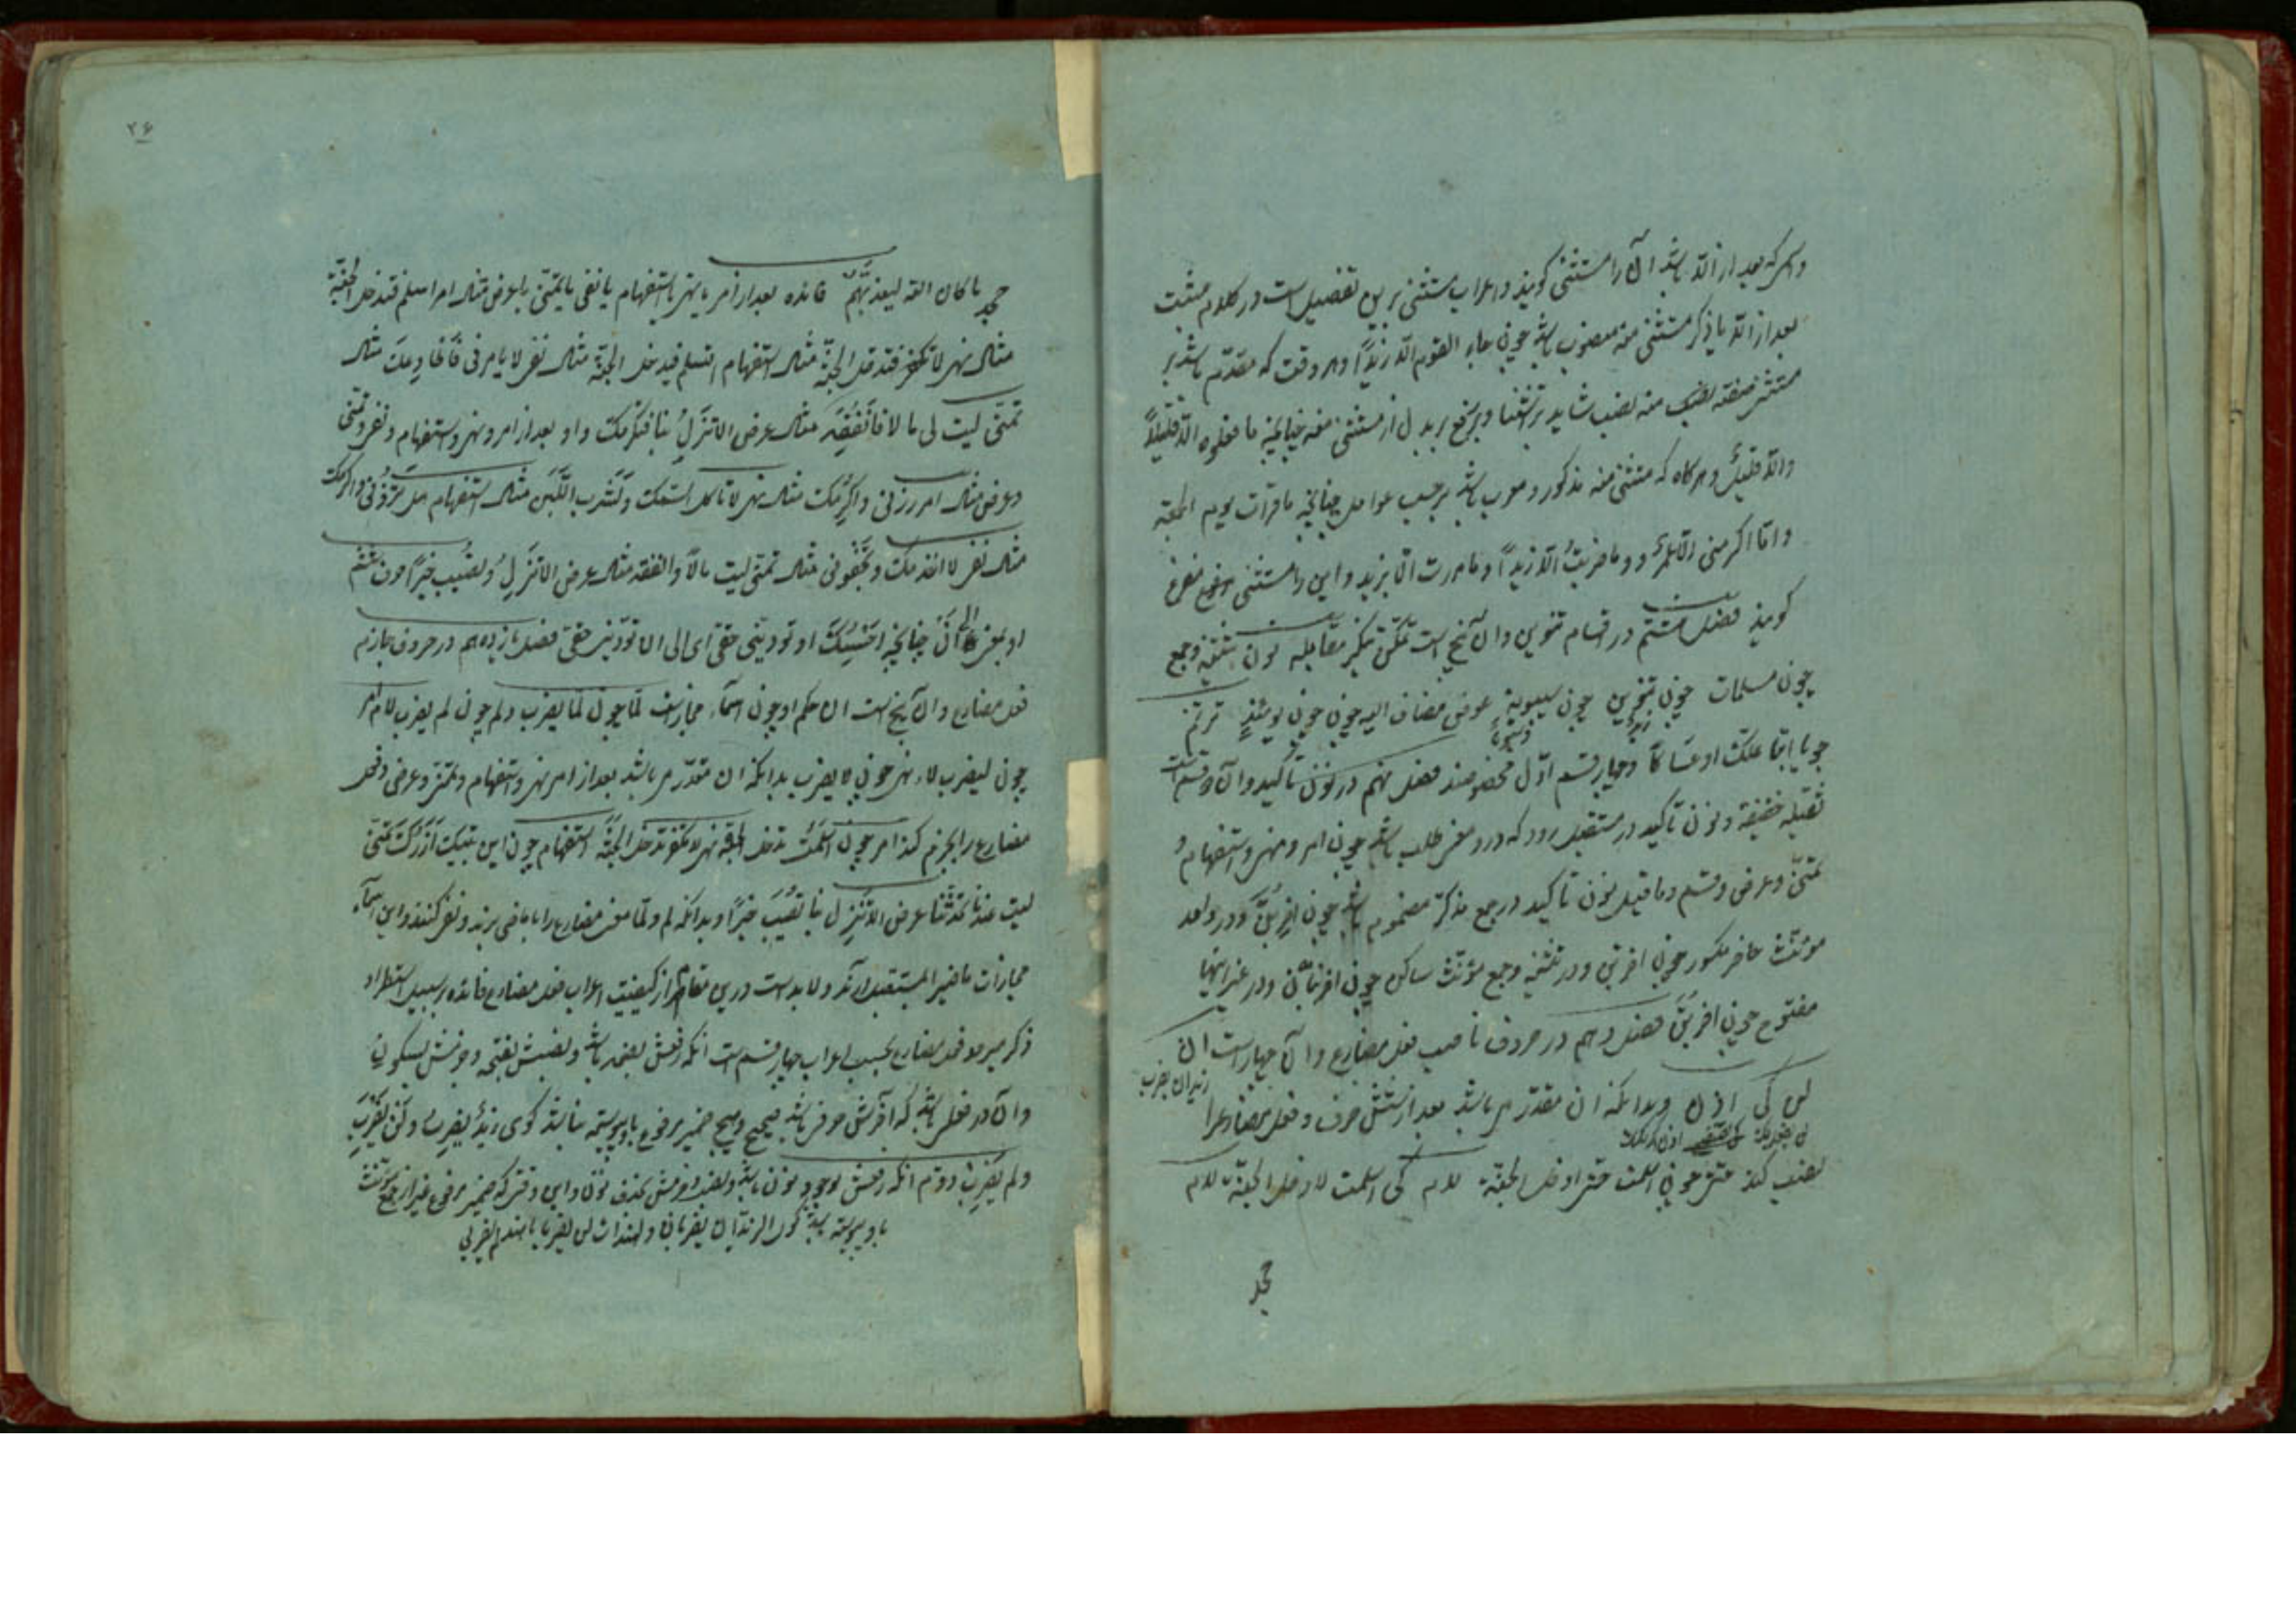 واسمی که بعد از الّا باشد آن را مستثنی کویند و اعراب مستثنی برین تفصیل است در کلام مثبت
بعد از الّا با ذکر مستثنی منه منصوب باشد چون جاء القوم الّا زیداً و هر وقت که مقدّم باشد بر
مستثنی منه نصب شاید بر استثنا و برفع بر بدل از مستثنی منه چنانچه ما فعلوه الّا قلیلاً
والّا قلیلٌ و هرکاه که مستثنی منه مذکور معرب باشد برحسب عوامل چنانچه ما قرأت یوم الجمعة
و ما اکرمنی الّا عمرٌو و ما ضربتُ الّا زیداً و ما مررت الّا بزید و این را مستثنی مفرغ
کویند فصل هشتم در اقسام تنوین و آن پنج است تمکّن تنکیر مقابله نون تثنیه وجمع
چون مسلمات چون تنوین چون سیبویهٍ عوض مضاف الیه چون یومئذٍ ترنّم
چو یا ابتا علّک او عساکاً و چهار قسم اوّل مخصوصند فصل نهم در نون تأکید و آن دو قسم است
ثقیله خفیفة و نون تأکید در مستقبل رود که درو معنی طلب باشد چون امر و نهی و استفهام و
تمنّی و عرض و قسم و ما قبل نون تأکید در جمع مذکّر مضموم باشد چون اضربُنّ و در واحد
مونّث حاضر مکسور چون اضربِنّ و در تثنیه و جمع مؤنّث ساکن چون اضربنانّ و در غیر اینها
مفتوح چون اضربَنَّ فصل دهم در حروف ناصب فعل مضارع و آن چهار است ان
لن کی اذن و بدانکه ان مقدّر می باشد بعد از شش حرف و فعل مضارع را
نصب کند حتی چون اسلمت حتی ادخل الجنّة لام کی اسلمت لادخل الجنّة لام
جحد
۲۶
جحد ما کان الله لیعذّبهم فائده بعد از امر یا نهی یا استفهام یا نفی یا تمنّی یا عرض مثال امر اسلم فتدخل الجنّة
مثال نهی لا تکفر فتدخل الجنّة مثال استفهام اتسلم فتدخل الجنّة مثال نفی لا یامرنی فأخادعک مثال
تمنّی لیت لی مالا فانفقه مثال عرض الا تنزلُ بنا فنکرمک واو بعد از امر و نهی و استفهام و نفی و تمنّی
و عرض مثال امر زرنی و اکرمک مثال نهی لا تاکل السمک و تشرب اللّبن مثال استفهام هل تزورنی و اکرمک
مثال نفی لا اخدمک و تجفونی مثال تمنّی لیت مالاً و انفقه مثال عرض الا تنزل و تصیب خیراً
او بمعنی الی انّ چنانچه احبسک او تودینی حقی ای الی ان تودینی حقی فصل یازدهم در حروف جازم
فعل مضارع و آن پنج است ان حکم او چون اسماء مجازات لمّا چون لمّا یضرب و لم چون لم یضرب لام امر
چون لیضرب لاء نهی چون لا یضرب بدانکه ان مقدّر می باشد بعد از امر نهی و استفهام و تمنّی و عرض و فعل
مضارع را بجزم کند امر چون اسلم تدخل الجنّة نهی لا تکفر تدخل الجنّة استفهام چون این بیتک ازرک تمنّی
لیت عندنا تحدّثنا عرض الا تنزل بنا تصب خیراً و بدانکه لم و لمّا معنی مضارع را با ماضی برند و نفی کنند و این اسماء
مجازات ماضی را بمستقبل آرند و لا بد است درین مقام از کیفیت اعراب فعل مضارع فائده بر سبیل استطراد
ذکر میرود فعل مضارع بحسب اعراب چهار قسم است آنکه رفعش بضمه باشد و نصبش بفتحه و جزمش بسکون
و آن در فعلی باشد که آخرش حرف باشد صحیح و هیچ ضمیر مرفوع با او پیوسته نباشد کوی زیدٌ یضربُ و لن یضربَ
و لم یضربْ دوّم آنکه رفعش بوجود نون باشد و نصب و جزمش بحذف نون و این وقتی که ضمیر مرفوع غیر از جمع مؤنّث
با او پیوسته باشد چون الزیدان یضربان